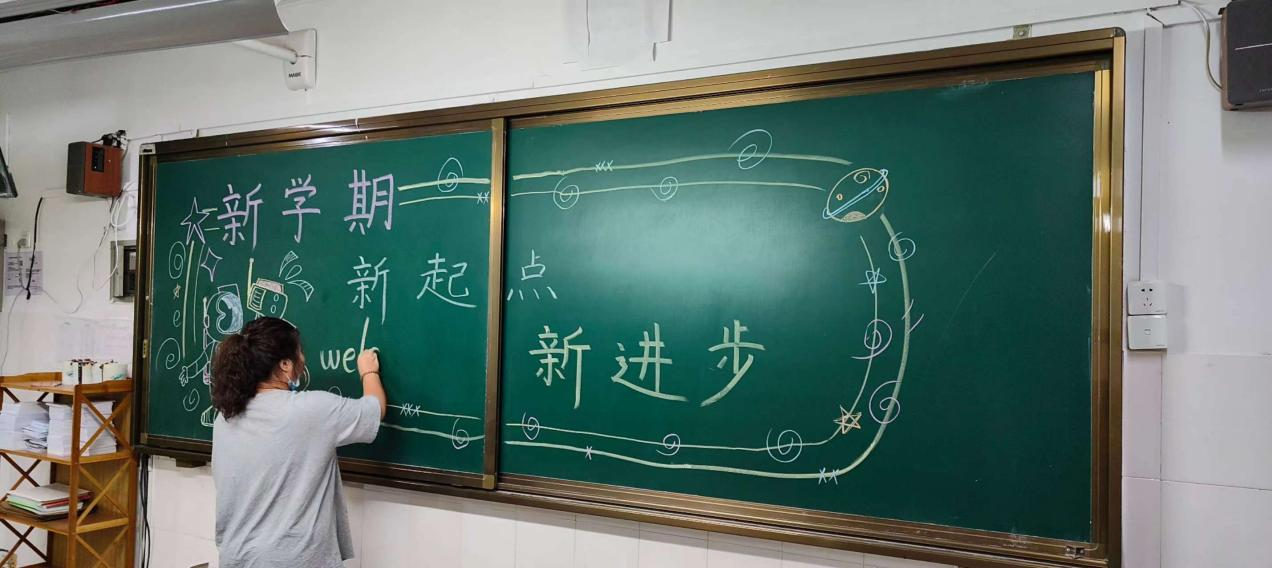 新学期
新起点
wel
新进步